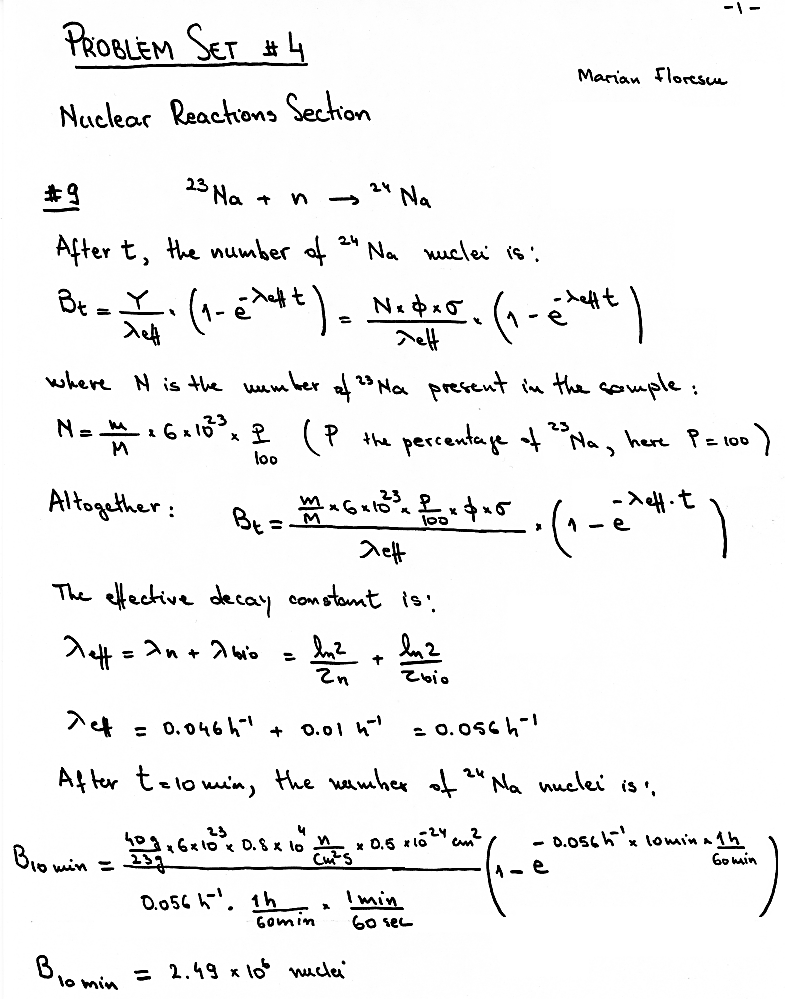 -1-
PROBLEM SET #4
Marian Florescu
Nuclear Reactions Section
#9 ²³Na + n → ²⁴Na
After t, the number of ²⁴Na nuclei is:
B_t = Y/λeff · (1 - e^(-λeff t)) = N × φ × σ / λeff × (1 - e^(-λeff t))
where N is the number of ²³Na present in the sample:
N = m/M × 6 × 10²³ × P/100 (P the percentage of ²³Na, here P = 100)
Altogether: B_t = (m/M × 6 × 10²³ × P/100 × φ × σ) / λeff × (1 - e^(-λeff · t))
The effective decay constant is:
λeff = λn + λbio = ln2/τn + ln2/τbio
λeff = 0.046 h⁻¹ + 0.01 h⁻¹ = 0.056 h⁻¹
After t = 10 min, the number of ²⁴Na nuclei is:
B_10 min = (40g/23g × 6 × 10²³ × 0.8 × 10⁴ n/cm²s × 0.5 × 10⁻²⁴ cm²) / (0.056 h⁻¹ · 1h/60min × 1min/60sec) (1 - e^(-0.056 h⁻¹ × 10min × 1h/60min))
B_10 min = 2.49 × 10⁶ nuclei